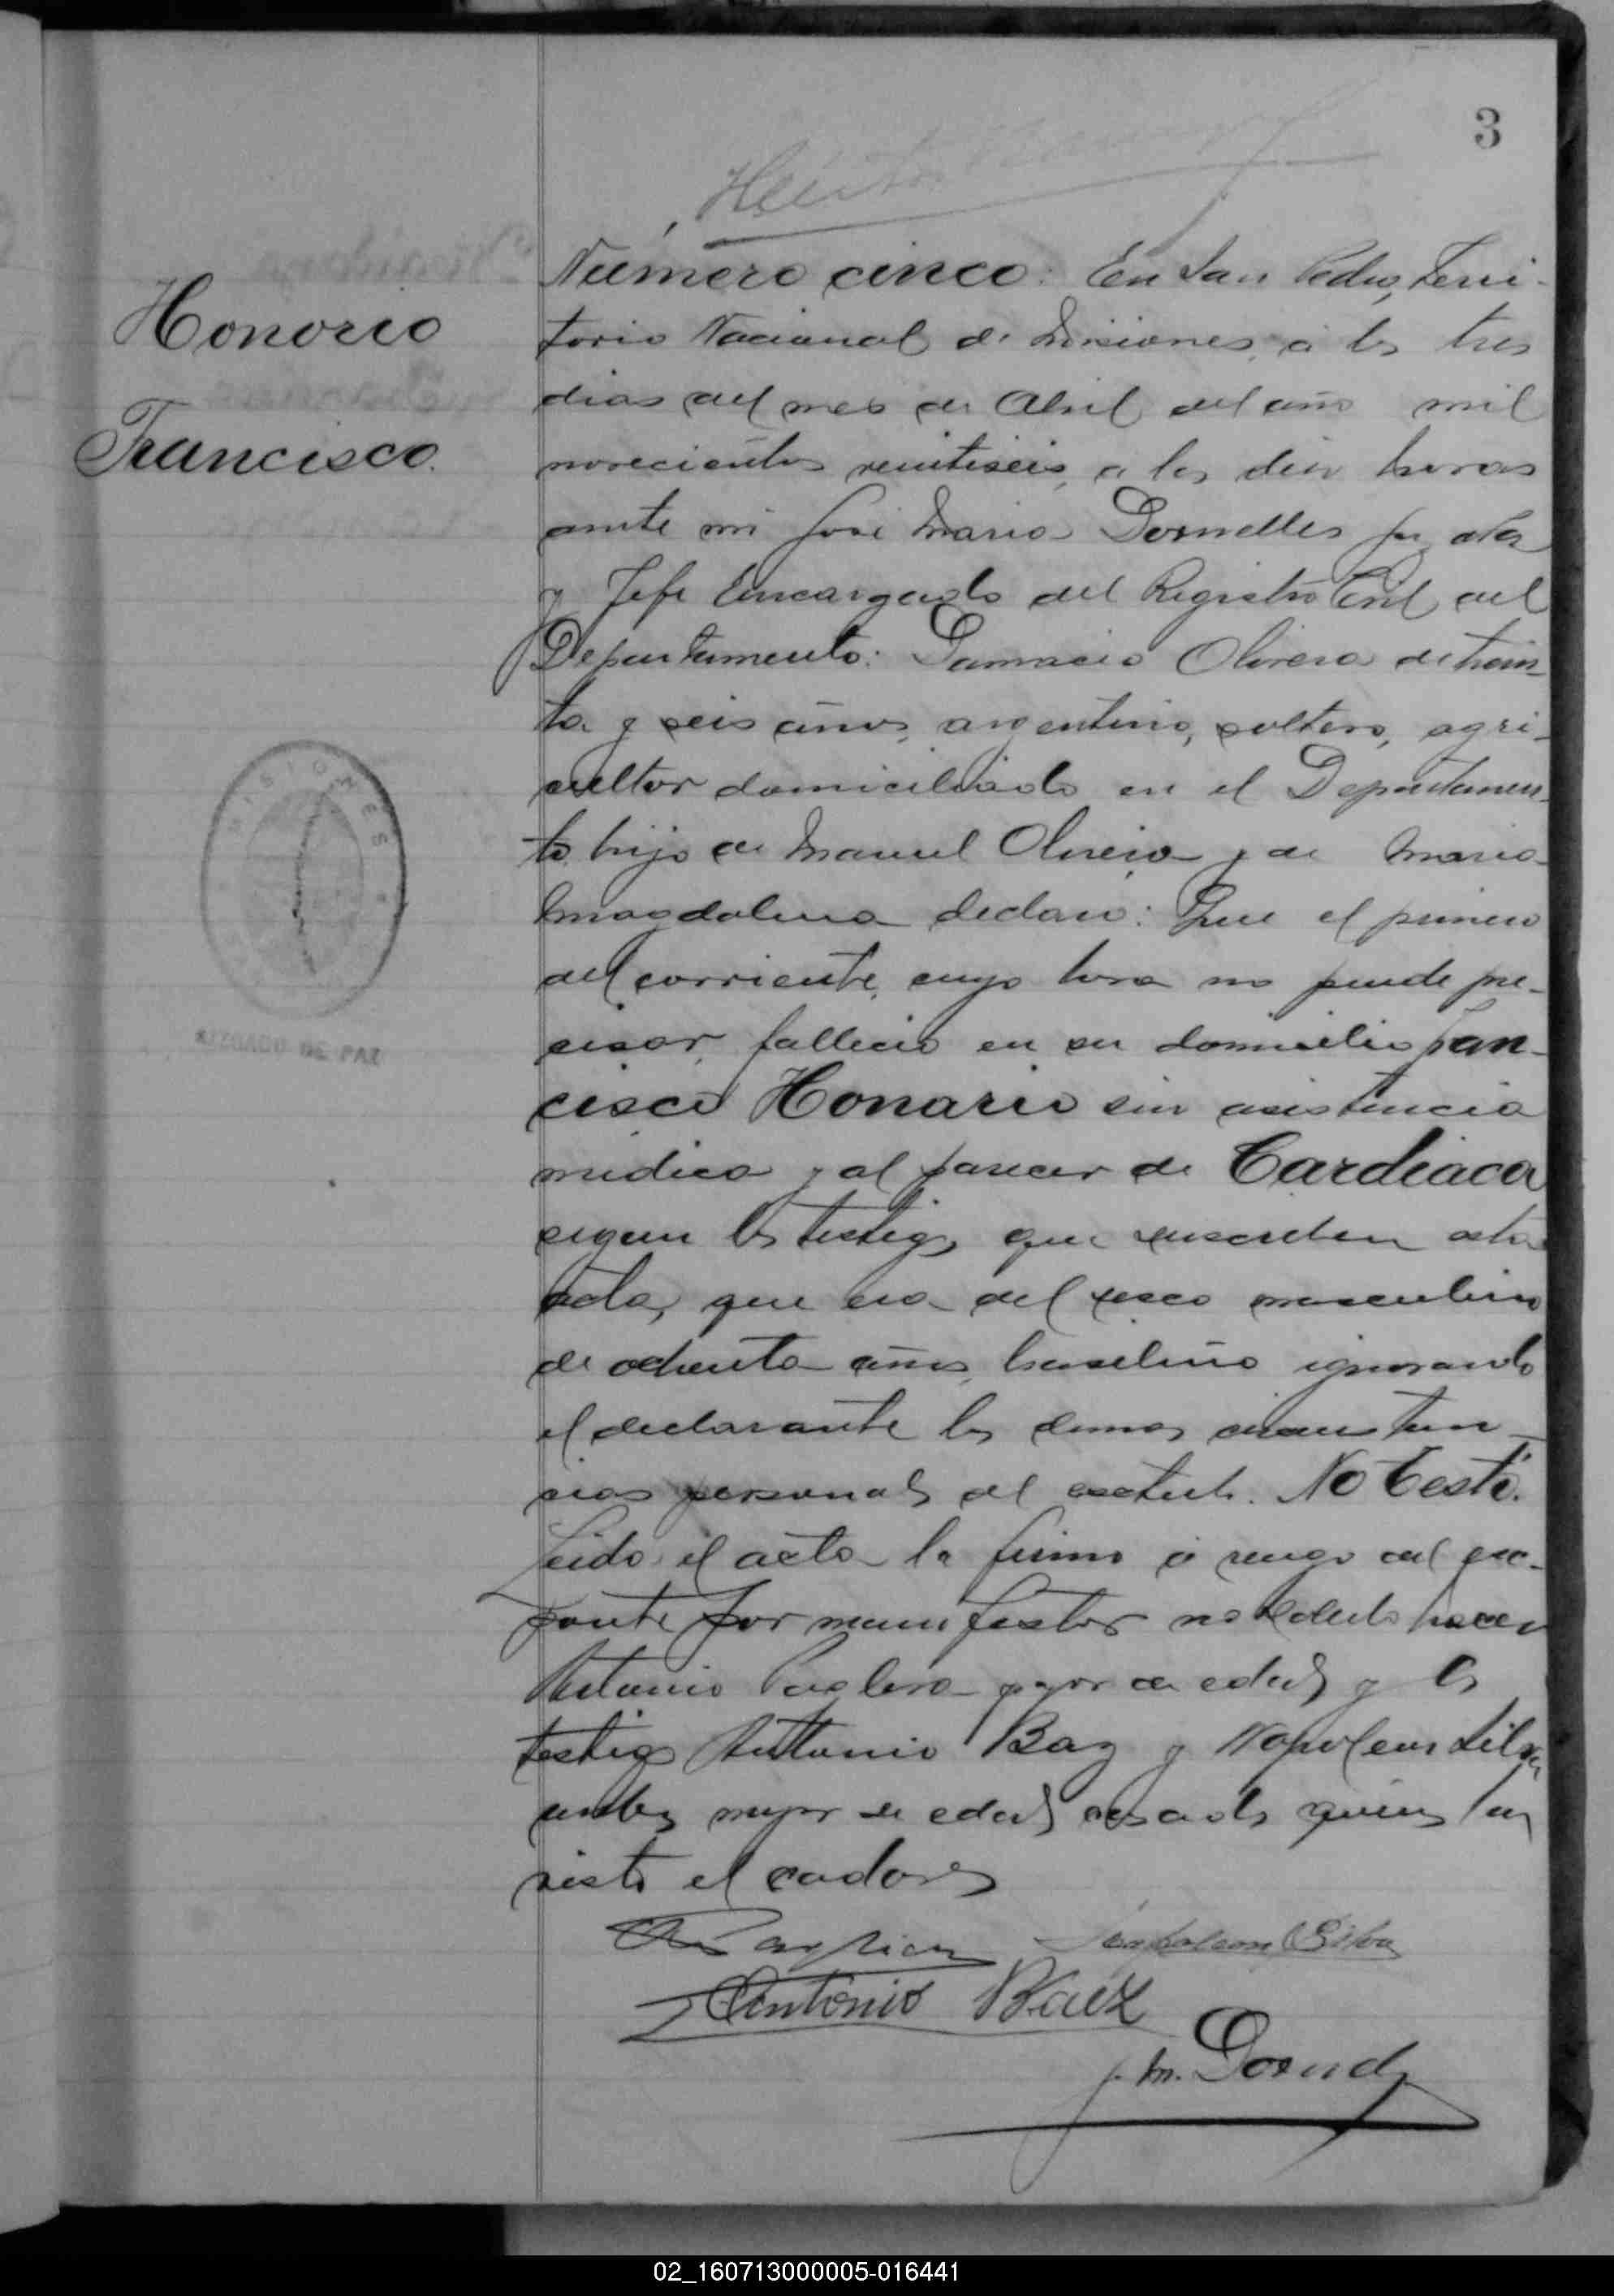 3
Honorio
Francisco.
MISIONES
JUZGADO DE PAZ
Número cinco: En San Pedro, Terri-
torio Nacional de Misiones, a los tres
dias del mes de Abril del año mil
novecientos veintiseis, a las diez horas
ante mi José Maria Dornelles
y Jefe Encargado del Registro Civil del
Departamento: Damacio Olivera de trein-
ta y seis años, argentino, soltero, agri-
cultor domiciliado en el Departamen-
to hijo de Manuel Olivera y de Maria
Magdalena declaró: Que el primero
del corriente, cuya hora no puede pre-
cisar, fallecio en su domicilio Fran-
cisco Honario sin asistencia
médica y al parecer de Cardiaca
segun los testigos que suscriben esta
acta, que era del sexo masculino
de ochenta años, brasileño ignorando
el declarante las demas circunstan-
cias personales del extinto. No testó.
Leida el acta la firma a ruego del expo-
nente por manifestar no saberlo hacer
Antonio mayor de edad y los
testigos Antonio Baez y Napoleon Silva
ambos mayor de edad casados quienes han
visto el cadaver
Napoleon Silva
Antonio Baez
J. M. Dornelles
02_160713000005-016441